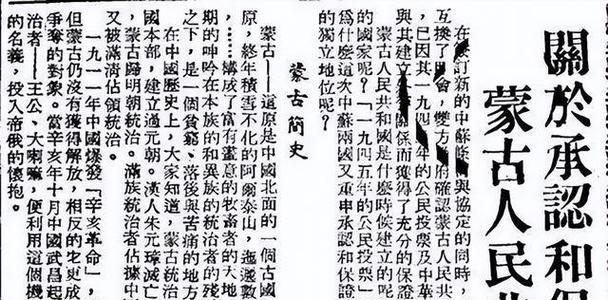 關於承認和保
蒙古人民共
在訂新的中蘇條與協定的同時,
互換了會,雙方府確認蒙古人民共
已因其一九四年的公民投票及中華
與其建立關係而獲得了充分的保證
蒙古人民共和國是什麼時候建立的呢
的國家呢?「一九四五年的公民投票」
爲什麼這次中蘇兩國又重申承認和保證
的獨立地位呢?
蒙古簡史
蒙古——這原是中國北面的一個古國
原,終年積雪不化的阿爾泰山,迤邐數
,……構成了富有畫意的牧畜者的大地
期的呻吟在本族的和異族的統治者的殘
之下,是一個貧窮、落後與苦痛的地方
在中國歷史上,大家知道,蒙古統治
國本部,建立過元朝。漢人朱元璋滅亡
,蒙古歸明朝統治。滿族統治者佔據中
又被滿清佔領統治。
一九一一年中國爆發「辛亥革命」,
但蒙古仍沒有獲得解放,相反的它更成
爭奪的對象。當辛亥年十月中國武昌起
治者——王公、大喇嘛,便利用這個機
的名義,投入帝俄的懷抱。